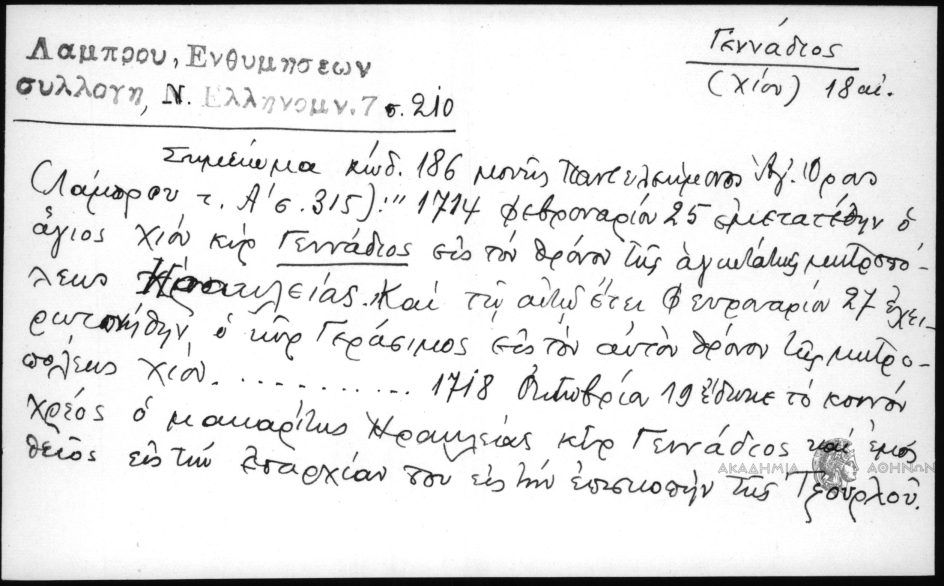 Λαμπρου, Ενθυμησεων
συλλογη, Ν. Ελληνομν. 7 σ. 210
Γεννάδιος
(Χίου) 18 αἰ.
Σημείωμα κώδ. 186 μονῆς Παντελεήμονος Ἁγ. Ὄρους
(Λάμπρου τ. Α´ σ. 315): "1714 φεβρουαρίου 25 ἐμετατέθην ὁ
ἅγιος Χίου κὺρ Γεννάδιος εἰς τὸν θρόνον τῆς ἁγιωτάτης μητροπό-
λεως Ἡρακλείας. Καὶ τῷ αὐτῷ ἔτει Φευρουαρίου 27 ἐχει-
ροτονήθην ὁ κὺρ Γεράσιμος εἰς τὸν αὐτὸν θρόνον τῆς μητρο-
πόλεως Χίου. . . . . . . . . . . . 1718 Ὀκτωβρίου 19 ἔδωκε τὸ κοινὸν
χρέος ὁ μακαρίτης Ἡρακλείας κὺρ Γεννάδιος καὶ ἐμὸς
θεῖος εἰς τὴν ἐπαρχίαν του εἰς τὴν ἐπισκοπὴν τῆς Τζουρλοῦ.
ΑΚΑΔΗΜΙΑ ΑΘΗΝΩΝ